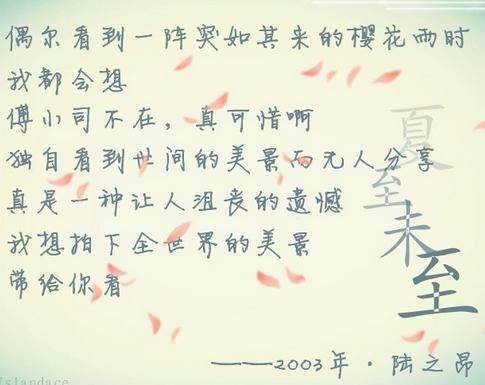 偶尔看到一阵突如其来的樱花雨时
我都会想
傅小司不在，真可惜啊
独自看到世间的美景而无人分享
真是一种让人沮丧的遗憾
我想拍下全世界的美景
带给你看
夏至未至
——2003年·陆之昂
Islandace